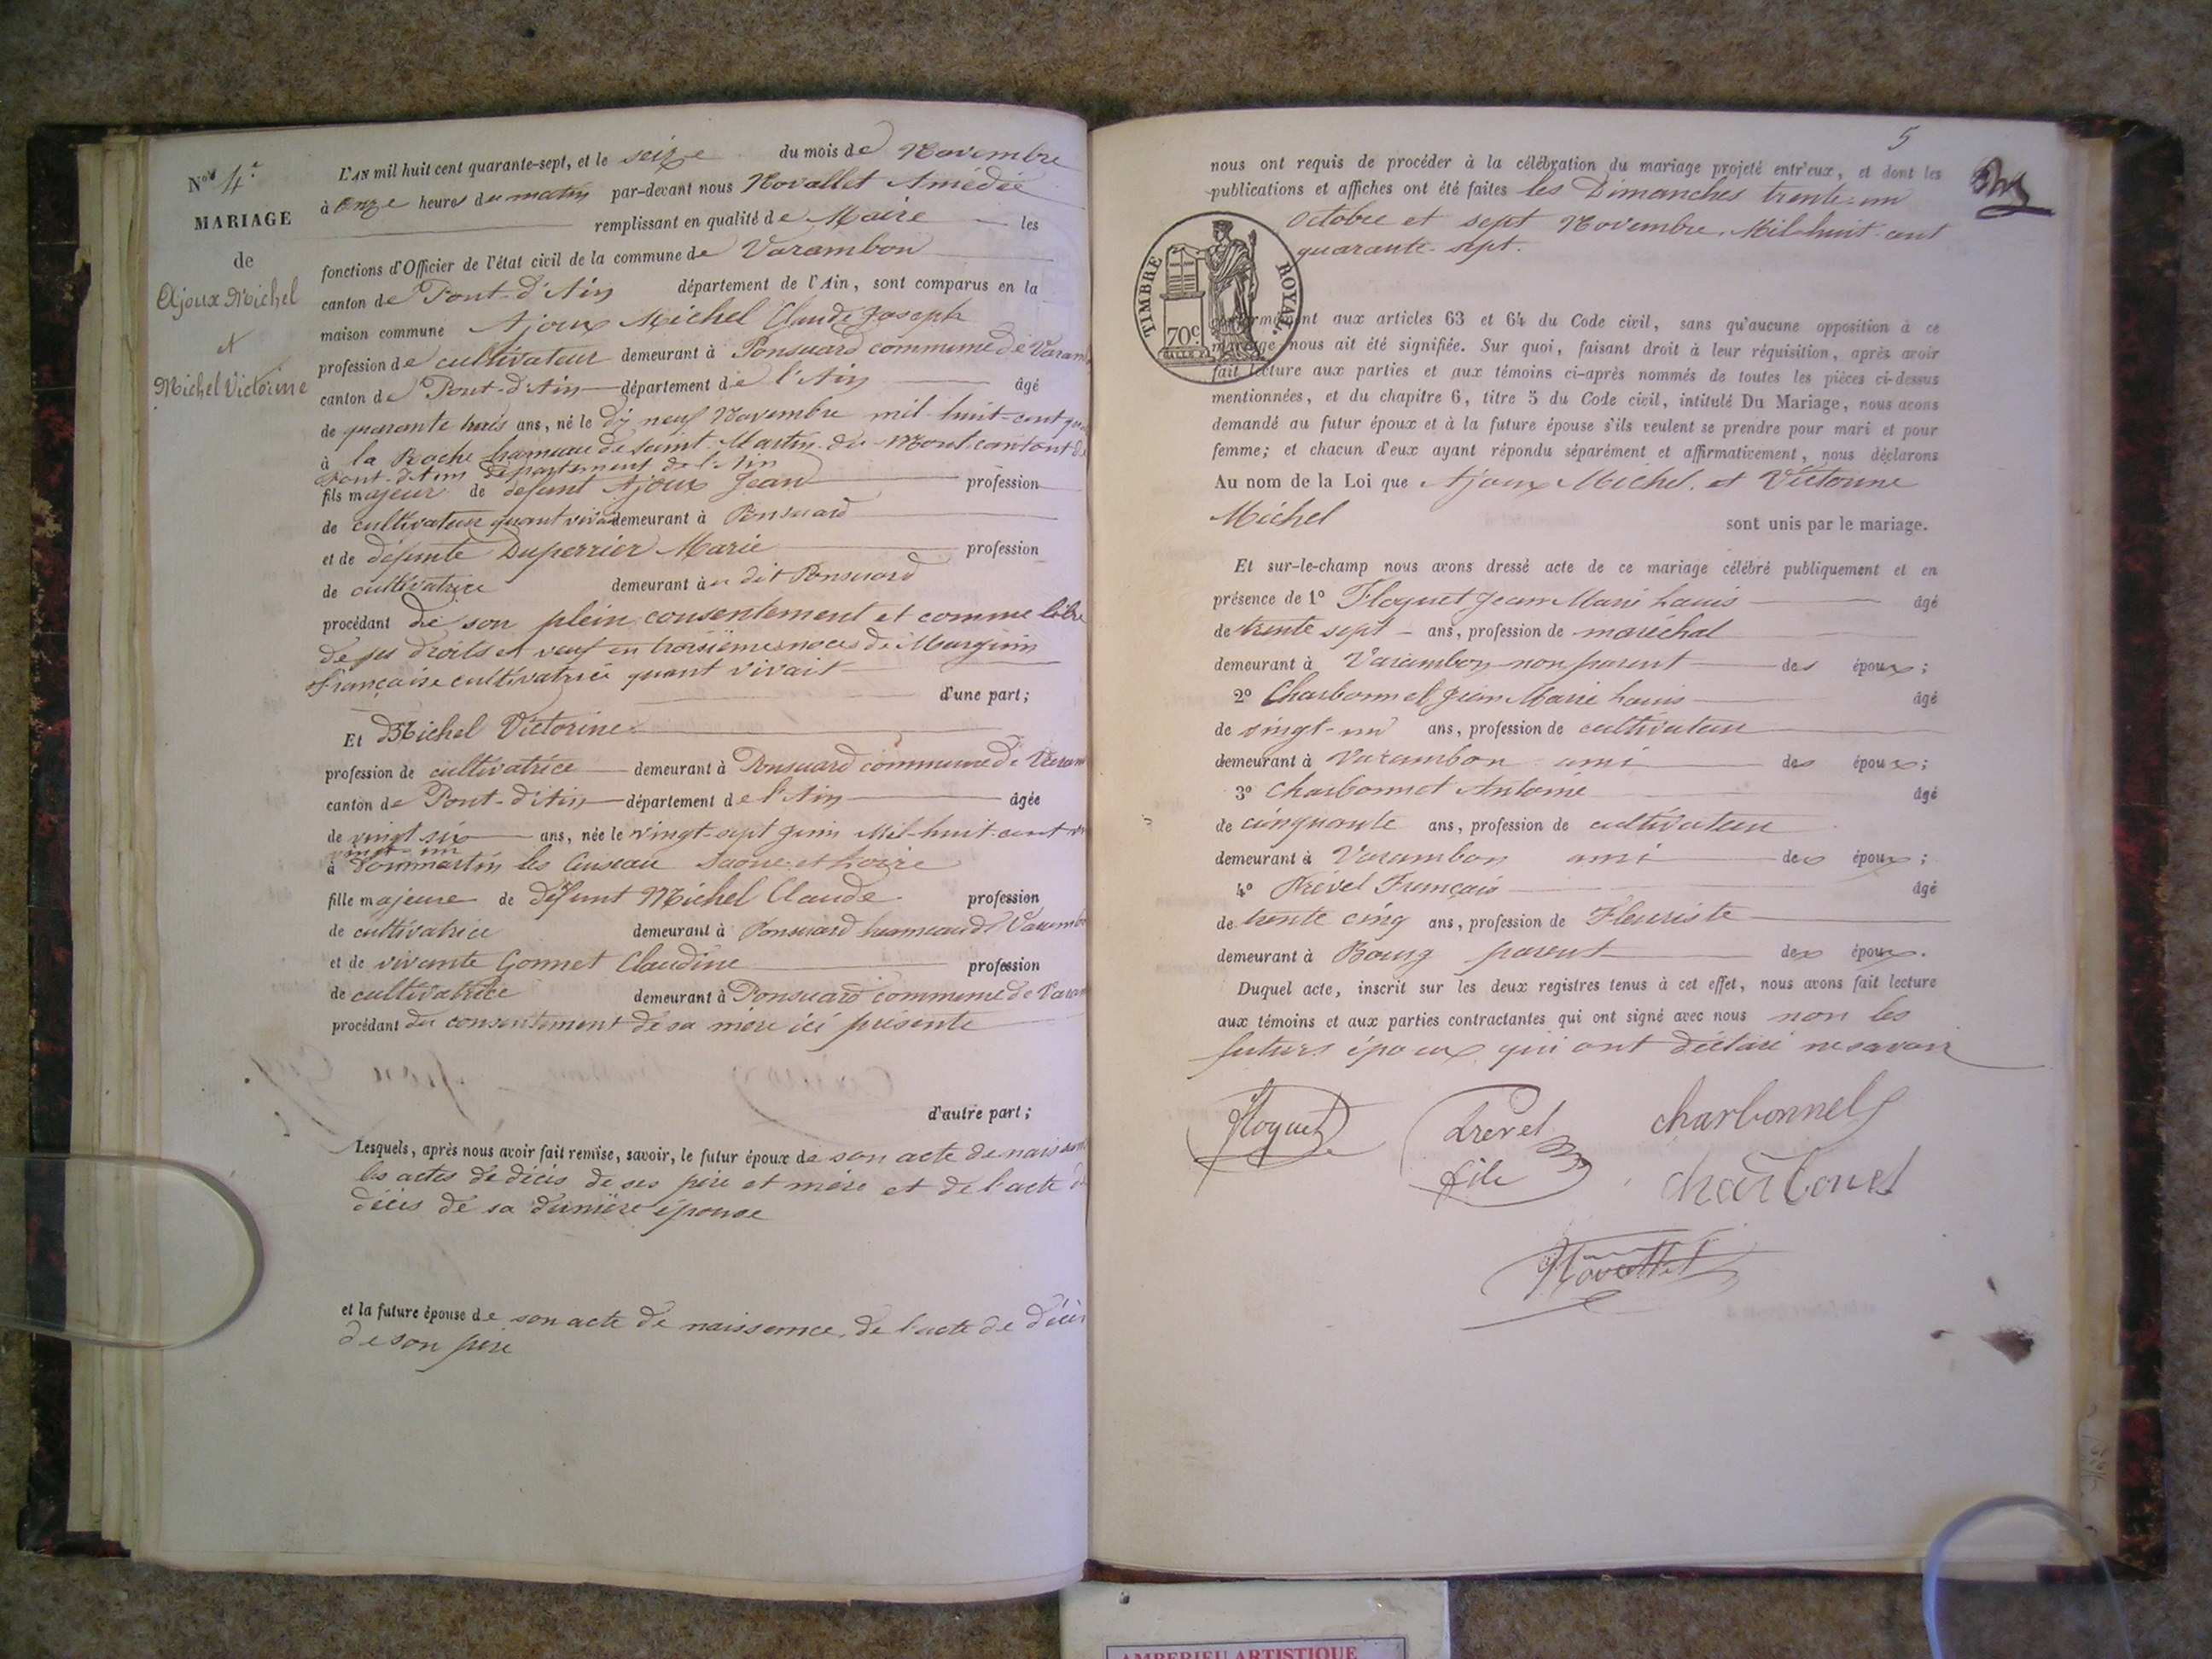 N.os 4.e
MARIAGE
de
Ajoux Michel
et
Michel Victorine
L'AN mil huit cent quarante-sept, et le seize du mois de Novembre
à Onze heures du matin par-devant nous Novallet Amédée
remplissant en qualité de Maire les
fonctions d'Officier de l'état civil de la commune de Varambon
canton de Pont-d'Ain département de l'Ain, sont comparus en la
maison commune Ajoux Michel Claude Joseph
profession de cultivateur demeurant à Ponsuard commune de Varamb
canton de Pont-d'Ain département de l'Ain âgé
de quarante trois ans, né le dix neuf Novembre mil-huit-cent qua
à la Roche hameau de saint-Martin-du-Mont canton de
Pont-d'Ain département de l'Ain
fils majeur de defunt Ajoux Jean profession
de cultivateur quant vivait demeurant à Ponsuard
et de défunte Duperrier Marie profession
de cultivatrice demeurant au dit Ponsuard
procédant de son plein consentement et comme libre
de ses droits et veuf en troisième noces de Margerin
Françoise cultivatrice quant vivait
d'une part;
Et Michel Victorine
profession de cultivatrice demeurant à Ponsuard commune de Varam
canton de Pont-d'Ain département de l'Ain âgée
de vingt six ans, née le vingt-sept Juin Mil-huit-cent
vingt-un
à Dommartin les Cuseau Saone-et-Loire
fille majeure de défunt Michel Claude profession
de cultivatrice demeurant à Ponsuard hameau de Varambo
et de vivante Gonnet Claudine profession
de cultivatrice demeurant à Ponsuard commune de Varam
procédant du consentement de sa mère ici présente
d'autre part;
Lesquels, après nous avoir fait remise, savoir, le futur époux de son acte de naissan
les actes de décès de ses père et mère et de l'acte de
décès de sa dernière épouse
et la future épouse de son acte de naissance, de l'acte de décès
de son père
5
nous ont requis de procéder à la célébration du mariage projeté entr'eux, et dont les
publications et affiches ont été faites les Dimanches trente-un
Octobre et sept Novembre Mil-huit-cent
quarante-sept.
TIMBRE ROYAL.
70c.
aux articles 63 et 64 du Code civil, sans qu'aucune opposition à ce
mariage nous ait été signifiée. Sur quoi, faisant droit à leur réquisition, après avoir
fait lecture aux parties et aux témoins ci-après nommés de toutes les pièces ci-dessus
mentionnées, et du chapitre 6, titre 5 du Code civil, intitulé Du Mariage, nous avons
demandé au futur époux et à la future épouse s'ils veulent se prendre pour mari et pour
femme; et chacun d'eux ayant répondu séparément et affirmativement, nous déclarons
Au nom de la Loi que Ajoux Michel et Victorine
Michel sont unis par le mariage.
Et sur-le-champ nous avons dressé acte de ce mariage célébré publiquement et en
présence de 1º Floquet Jean Marie Louis âgé
de trente sept ans, profession de maréchal
demeurant à Varambon non parent des époux;
2º Charbonnet Jean Marie Louis âgé
de vingt-un ans, profession de cultivateur
demeurant à Varambon ami des époux;
3º Charbonnet Antoine âgé
de cinquante ans, profession de cultivateur
demeurant à Varambon ami des époux;
4º Prével Français âgé
de trente cinq ans, profession de Fleuriste
demeurant à Bourg parent des époux.
Duquel acte, inscrit sur les deux registres tenus à cet effet, nous avons fait lecture
aux témoins et aux parties contractantes qui ont signé avec nous non les
futurs époux qui ont déclaré ne savoir
Floquet
Prevel
fils
charbonnel
charbonet
Novallet
AMBERIEU ARTISTIQUE